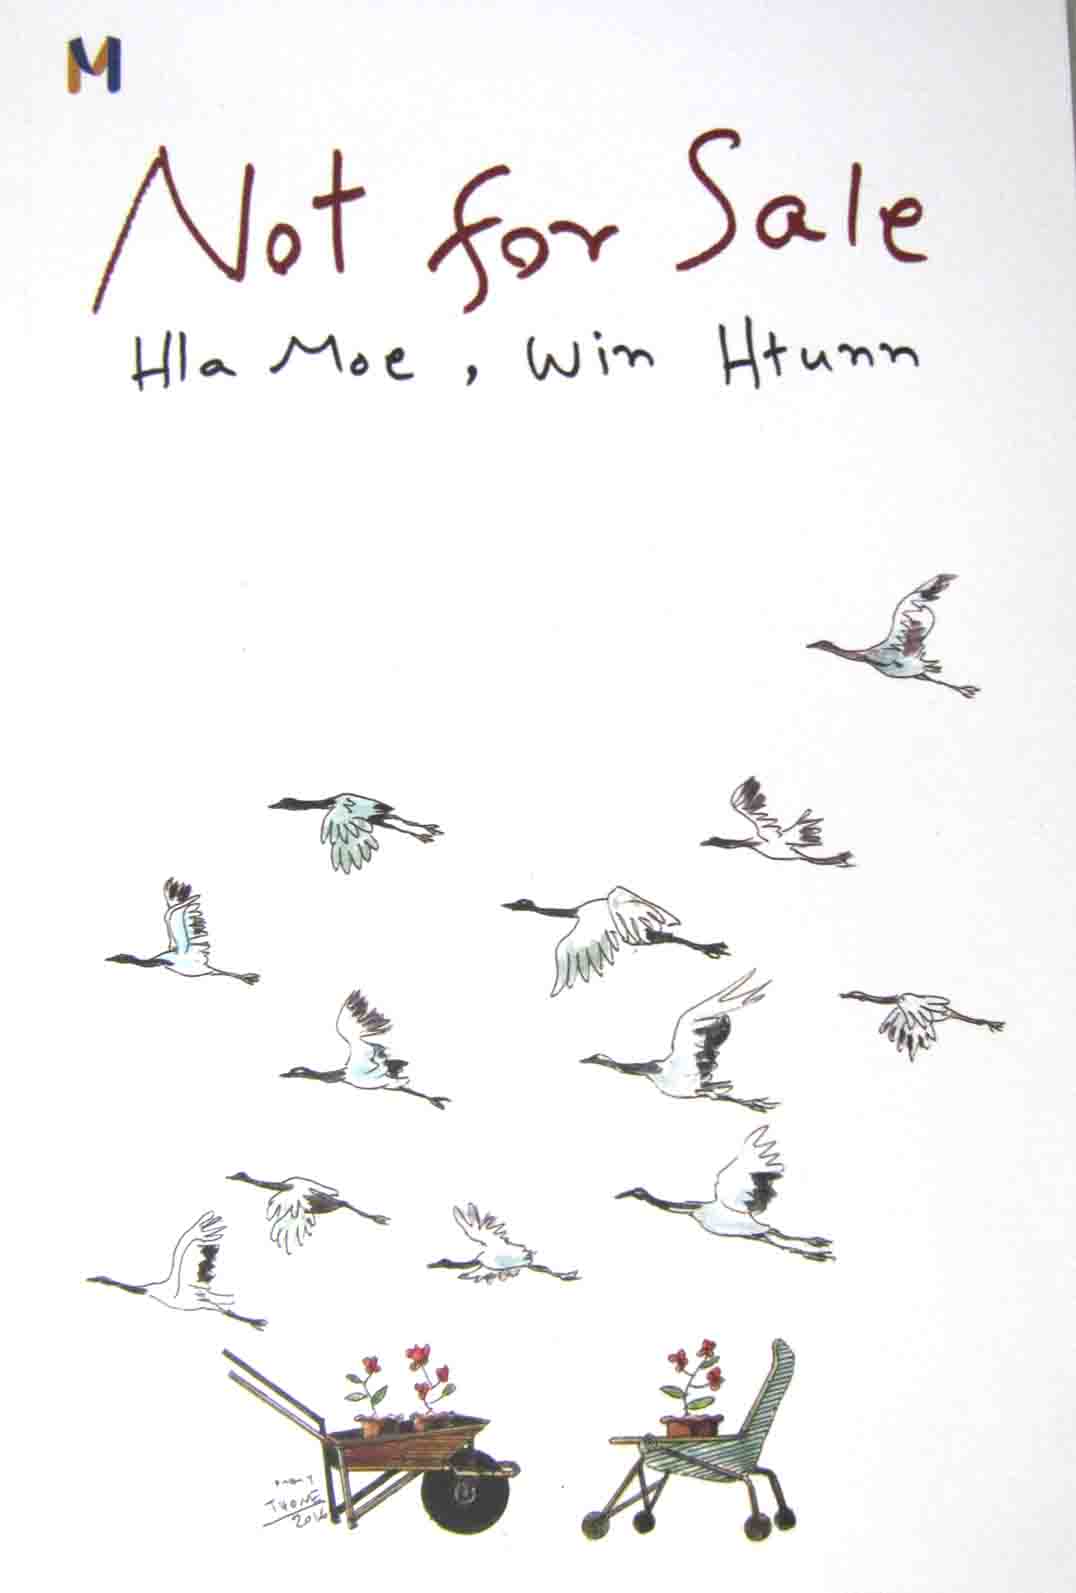 M
Not for Sale
Hla Moe, Win Htunn
2016